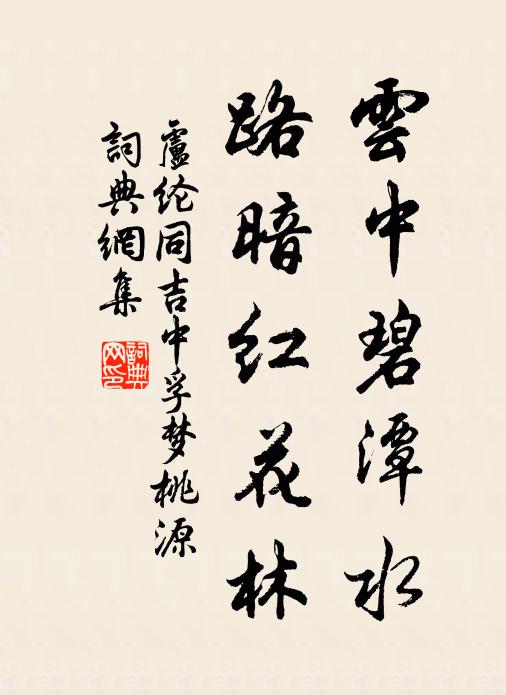 雲中碧潭水
路暗红花林
盧纶同吉中孚梦桃源
詞典網集
詞典网印